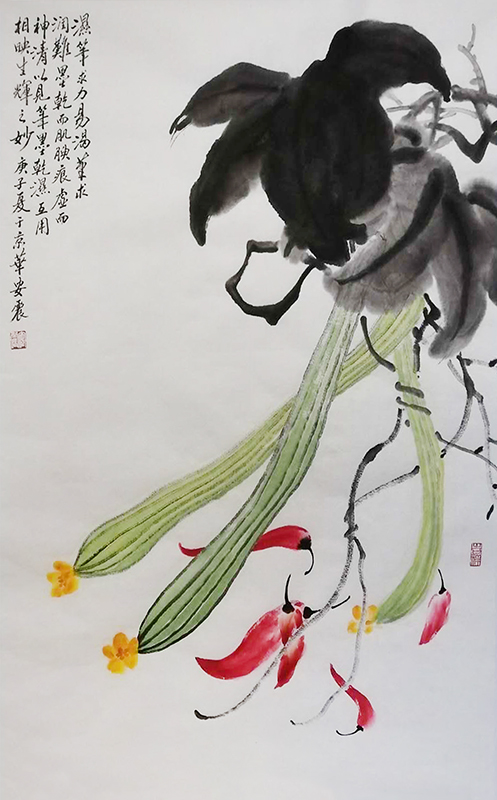 濕筆求力易渴筆求
潤難墨乾而肌腴痕虛而
神清以見筆墨乾濕互用
相映生輝之妙 庚子夏于京華安震